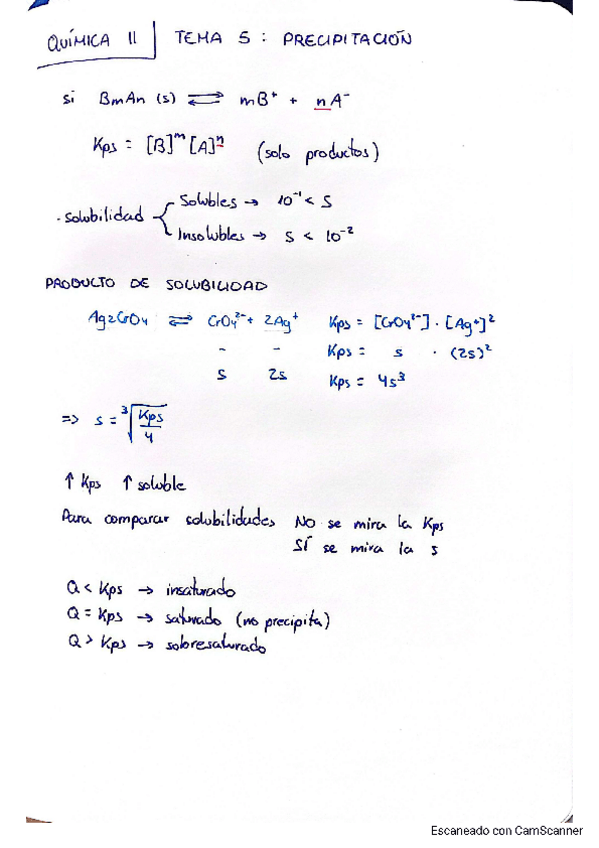 QUÍMICA II TEMA 5 : PRECIPITACIÓN
si BmAn (s) ⇌ mB⁺ + nA⁻
Kps = [B]ᵐ [A]ⁿ (solo productos)
· solubilidad
Solubles → 10⁻¹ < S
Insolubles → S < 10⁻²
PRODUCTO DE SOLUBILIDAD
Ag2CrO4 ⇌ CrO4²⁻ + 2Ag⁺ Kps = [CrO4²⁻] · [Ag⁺]²
- - Kps = s · (2s)²
s 2s Kps = 4s³
=> s = ∛(Kps/4)
↑ Kps ↑ soluble
Para comparar solubilidades NO se mira la Kps
SÍ se mira la s
Q < Kps → insaturado
Q = Kps → saturado (no precipita)
Q > Kps → sobresaturado
Escaneado con CamScanner